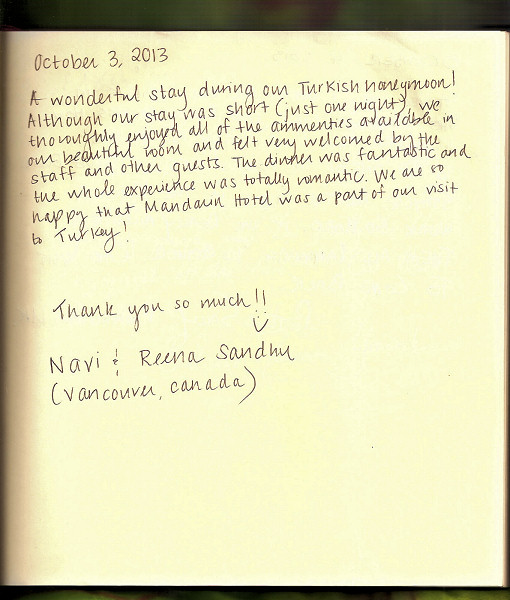 October 3, 2013
A wonderful stay during our Turkish honeymoon!
Although our stay was short (just one night), we
thoroughly enjoyed all of the ammenties available in
our beautiful room and felt very welcomed by the
staff and other guests. The dinner was fantastic and
the whole experience was totally romantic. We are so
happy that Mandarin Hotel was a part of our visit
to Turkey!
Thank you so much!!
Navi & Reena Sandhu
(Vancouver, Canada)